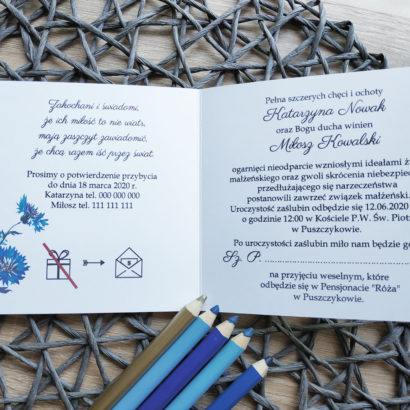 Zakochani i świadomi,
że ich miłość to nie wiatr,
mają zaszczyt zawiadomić,
że chcą razem iść przez świat.
Prosimy o potwierdzenie przybycia
do dnia 18 marca 2020 r.
Katarzyna tel. 000 000 000
Miłosz tel. 111 111 111
$
Pełna szczerych chęci i ochoty
Katarzyna Nowak
oraz Bogu ducha winien
Miłosz Kowalski
ogarnięci nieodparcie wzniosłymi ideałami ż
małżeńskiego oraz gwoli skrócenia niebezpiec
przedłużającego się narzeczeństwa
postanowili zawrzeć związek małżeński.
Uroczystość zaślubin odbędzie się 12.06.2020
o godzinie 12:00 w Kościele P.W. Św. Piot
w Puszczykowie.
Po uroczystości zaślubin miło nam będzie go
Sz. P. ..............................
na przyjęciu weselnym, które
odbędzie się w Pensjonacie "Róża"
w Puszczykowie.